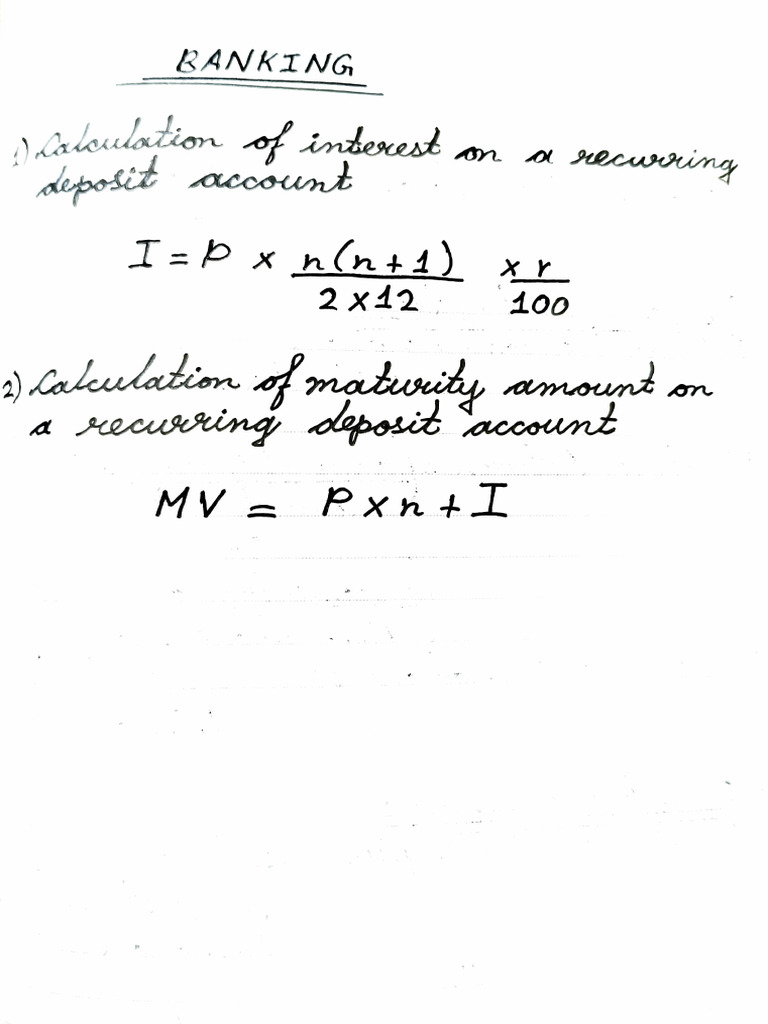 BANKING
1) Calculation of interest on a recurring
deposit account
I = P × n(n+1)/2×12 × r/100
2) Calculation of maturity amount on
a recurring deposit account
MV = P×n+I